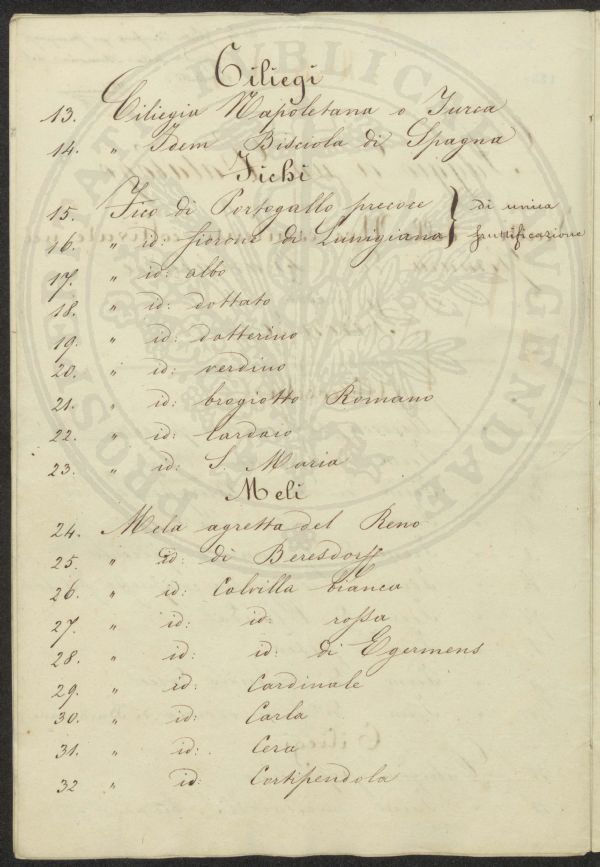 Ciliegi
13. Ciliegia Napoletana o Turca
14. " Idem Bisciola di Spagna
Fichi
15. Fico di Portogallo precoce } di unica
16. " id: fiorone di Lunigiana } fruttificazione
17. " id: albo
18. " id: dottato
19. " id: dotterino
20. " id: verdino
21. " id: brogiotto Romano
22. " id: lardaio
23. " id: S. Maria
Meli
24. Mela agretta del Reno
25. " id: di Beresdorff
26. " id: Calvilla bianca
27. " id: id: rossa
28. " id: id: di Egermens
29. " id: Cardinale
30. " id: Carla
31. " id: Cera
32 " id: Cortipendola
PROSPERITATI PUBLICAE AUGENDAE